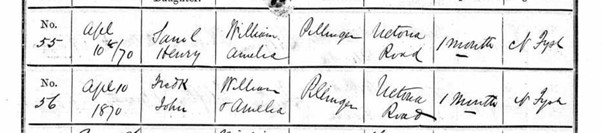 Daughter.
No. 55 Apl 10th/70 Saml Henry William Amelia Pillinger Victoria Road 1 month N Fysh
No. 56 Apl 10 1870 Fredk John William & Amelia Pillinger Victoria Road 1 Month N Fysh